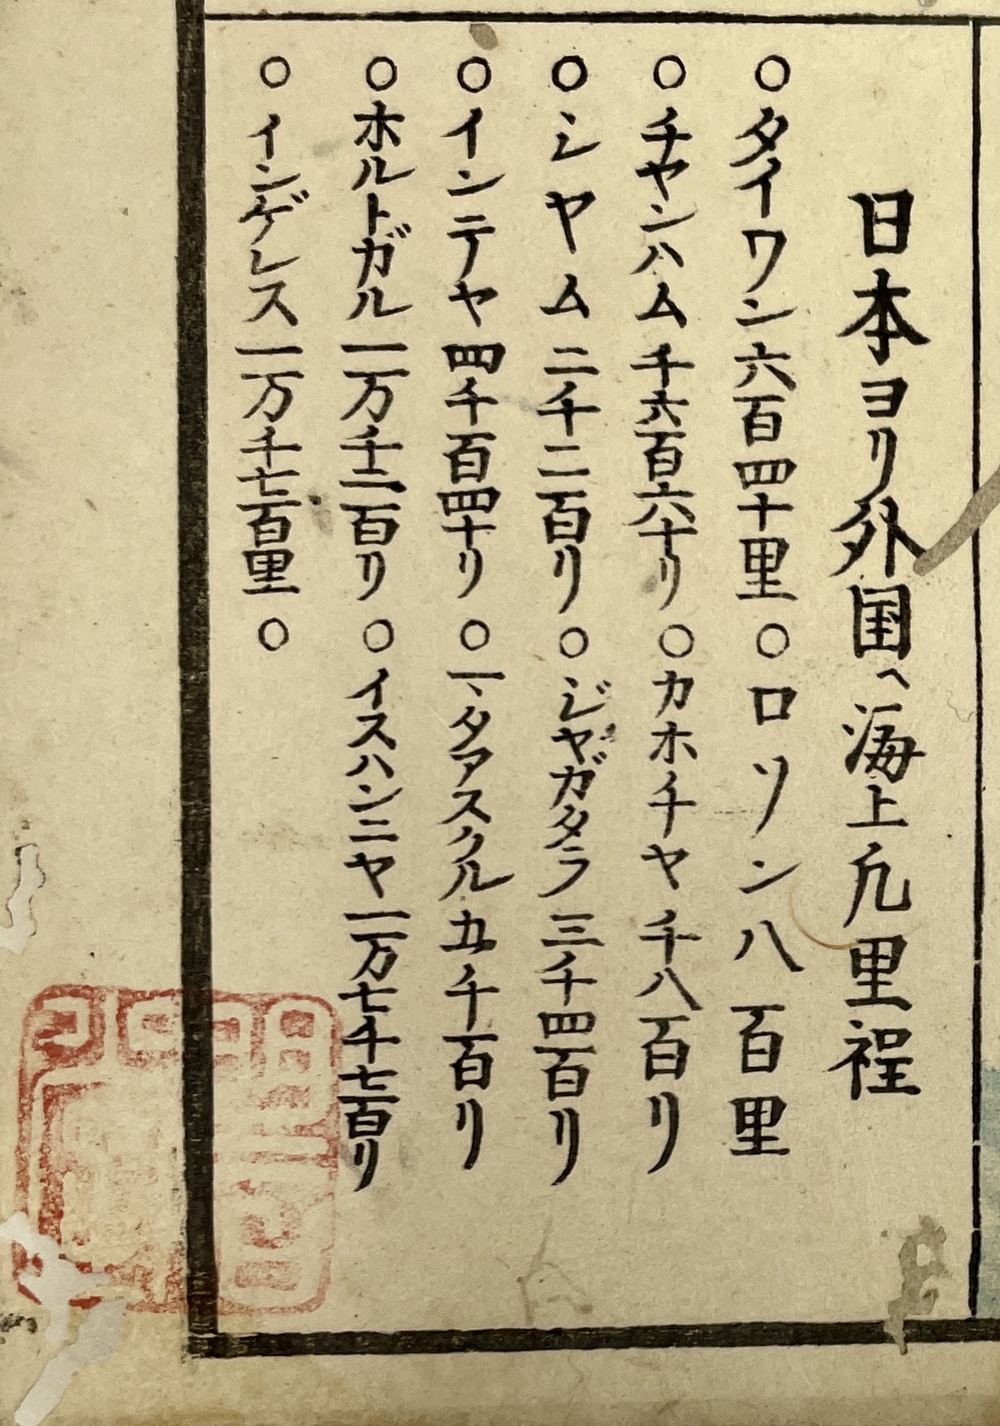 日本ヨリ外国へ海上凢里程
○タイワン六百四十里○ロソン八百里
○チヤンハム千六百六十リ○カホチヤ千八百リ
○シヤム二千二百リ○ジヤガタラ三千四百リ
○インテヤ四千百四十リ○一、タアスクル五千百リ
○ホルトガル一万千二百リ○イスハンニヤ一万七千七百リ
○インゲレス一万千七百里○